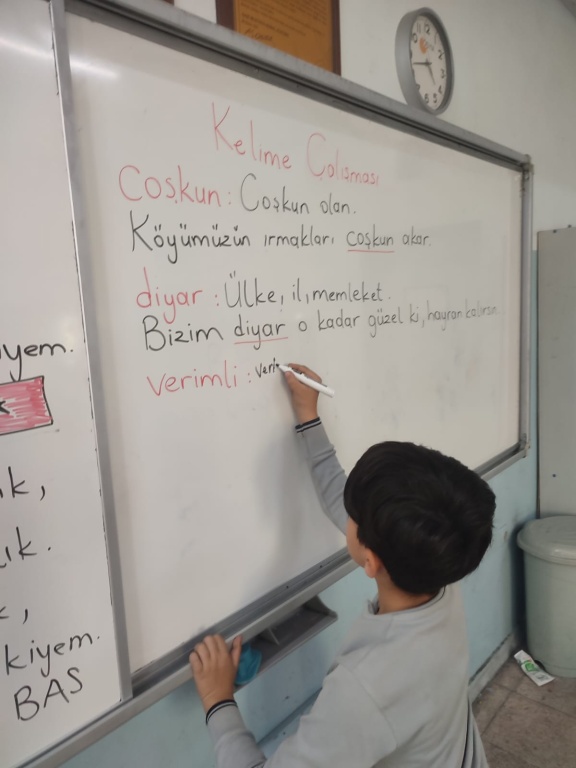 Kelime Çalışması
Coşkun: Coşkun olan.
Köyümüzün ırmakları coşkun akar.
diyar: Ülke, il, memleket.
Bizim diyar o kadar güzel ki, hayran kalırsın.
verimli: veri
yem.
k,
ık.
kiyem.
BAS